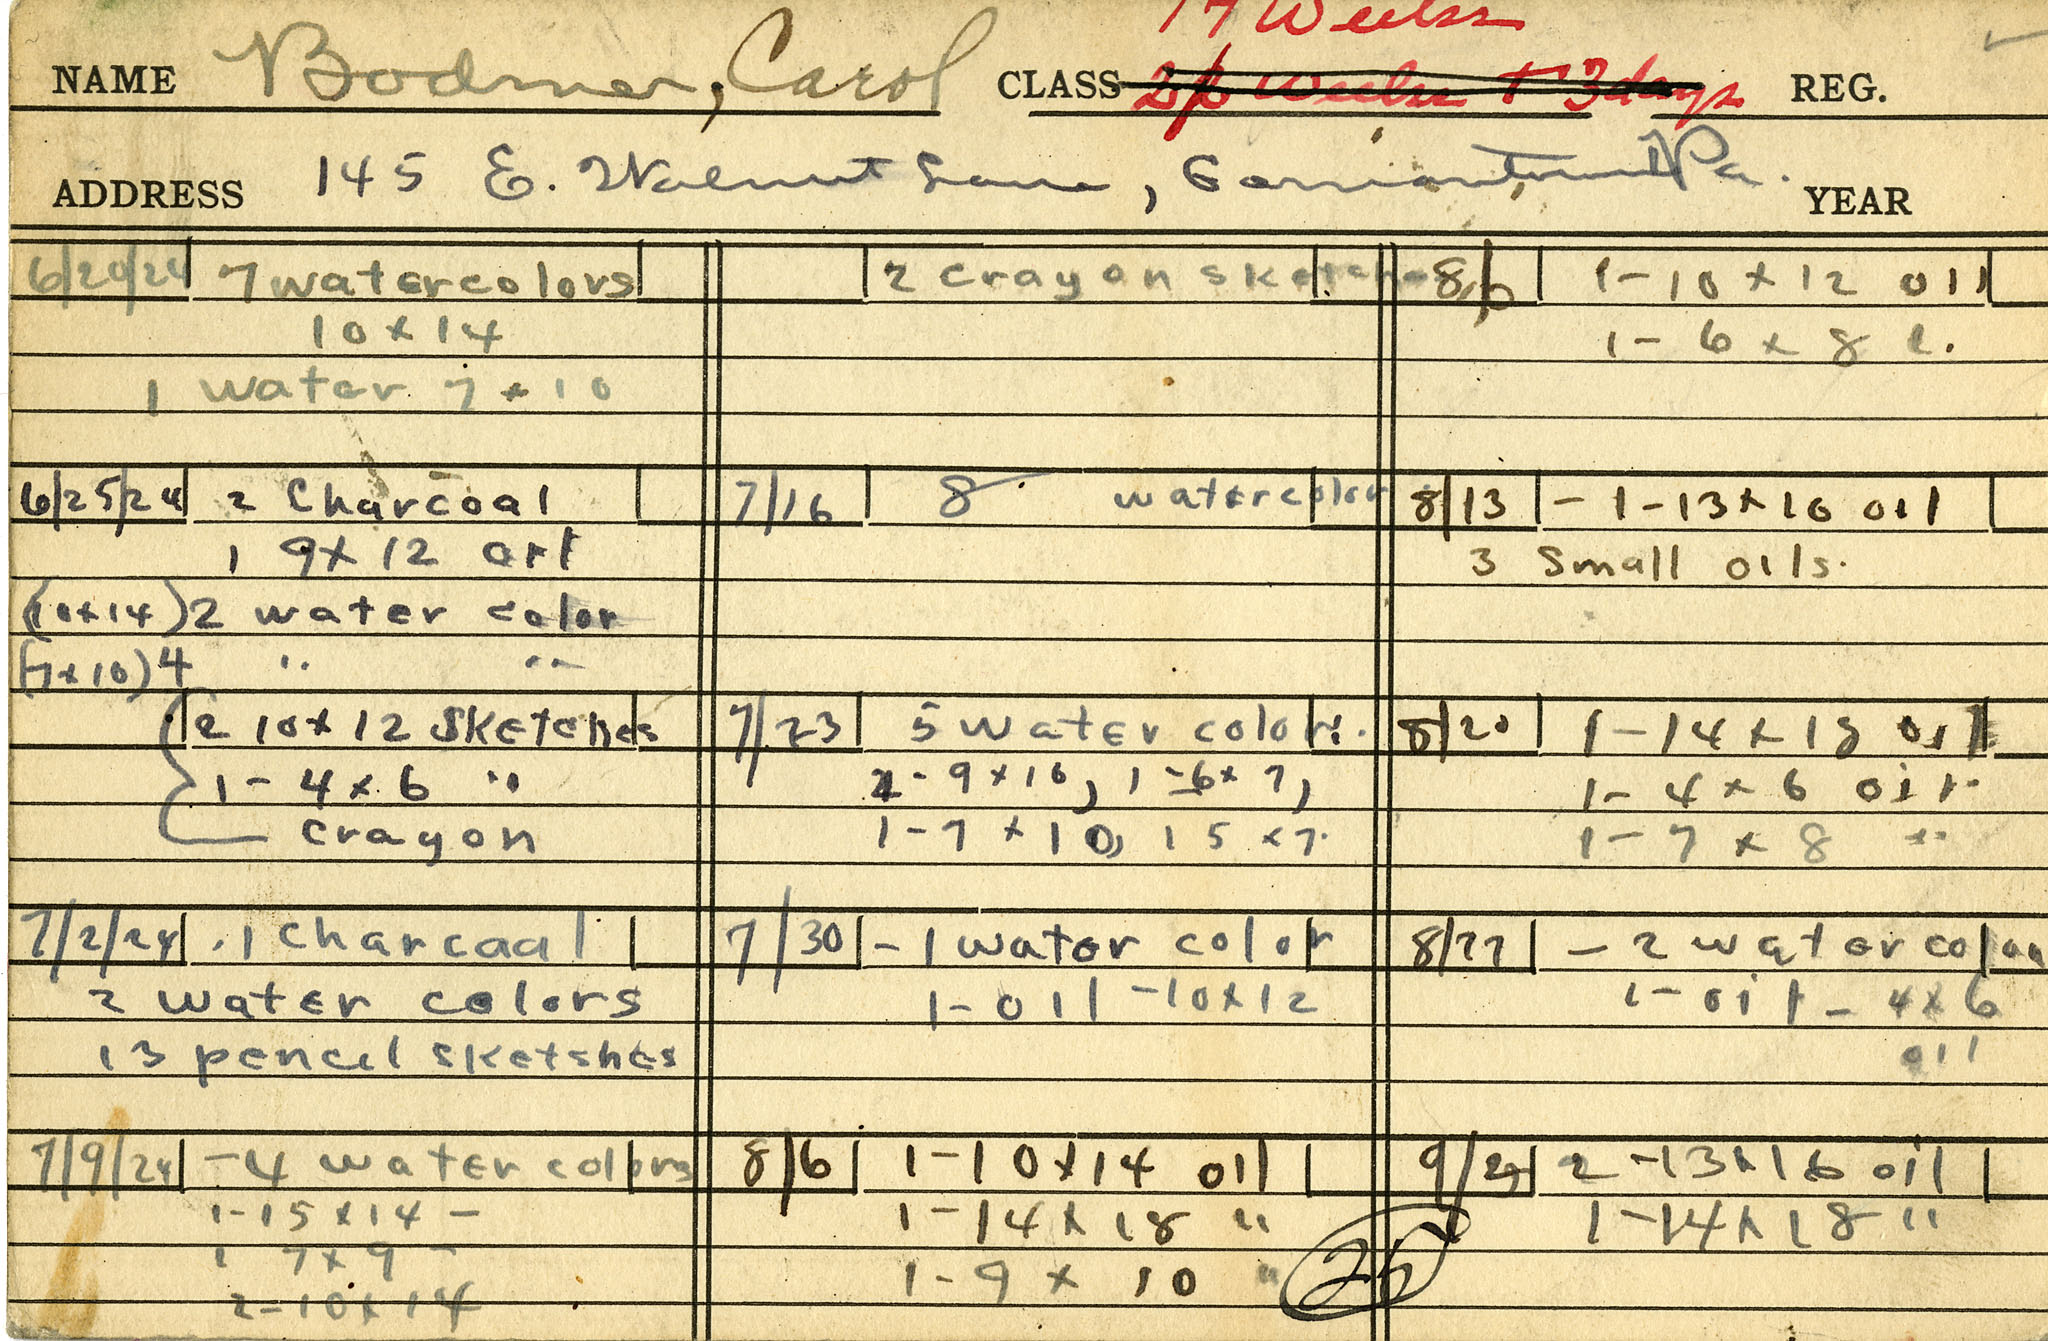 17 Weeks
NAME Bodmer, Carol CLASS Weeks + 3 days REG.
ADDRESS 145 E. Walnut Lane, Germantown Pa. YEAR
6/20/24 7 watercolors
10 x 14
1 water 7 x 10
6/25/24 2 Charcoal
1 9 x 12 art
(10x14) 2 water color
(7x10) 4 " "
2 10 x 12 Sketches
1 - 4 x 6 "
crayon
7/2/24 . 1 charcoal
2 water colors
13 pencil sketshes
7/9/24 - 4 water colors
1-15 x 14 -
1 7 x 9 -
2-10 x 14
2 crayon sketches
7/16 8 watercolor
7/23 5 water color.
- 9 x 10, 1 - 6 x 7,
1 - 7 x 10, 1 5 x 7.
7/30 - 1 water color
1 - oil - 10 x 12
8/6 1 - 10 x 14 oil
1 - 14 x 18 "
1 - 9 x 10 "
8/6 1 - 10 x 12 oil
1 - 6 x 8 "
8/13 - 1 - 13 x 10 oil
3 Small oils.
8/20 1 - 14 x 18 oil
1 - 4 x 6 oil
1 - 7 x 8 "
8/27 - 2 water color
1 - oil - 4 x 6
oil
9/ 2 - 13 x 16 oil
1 - 14 x 18 "